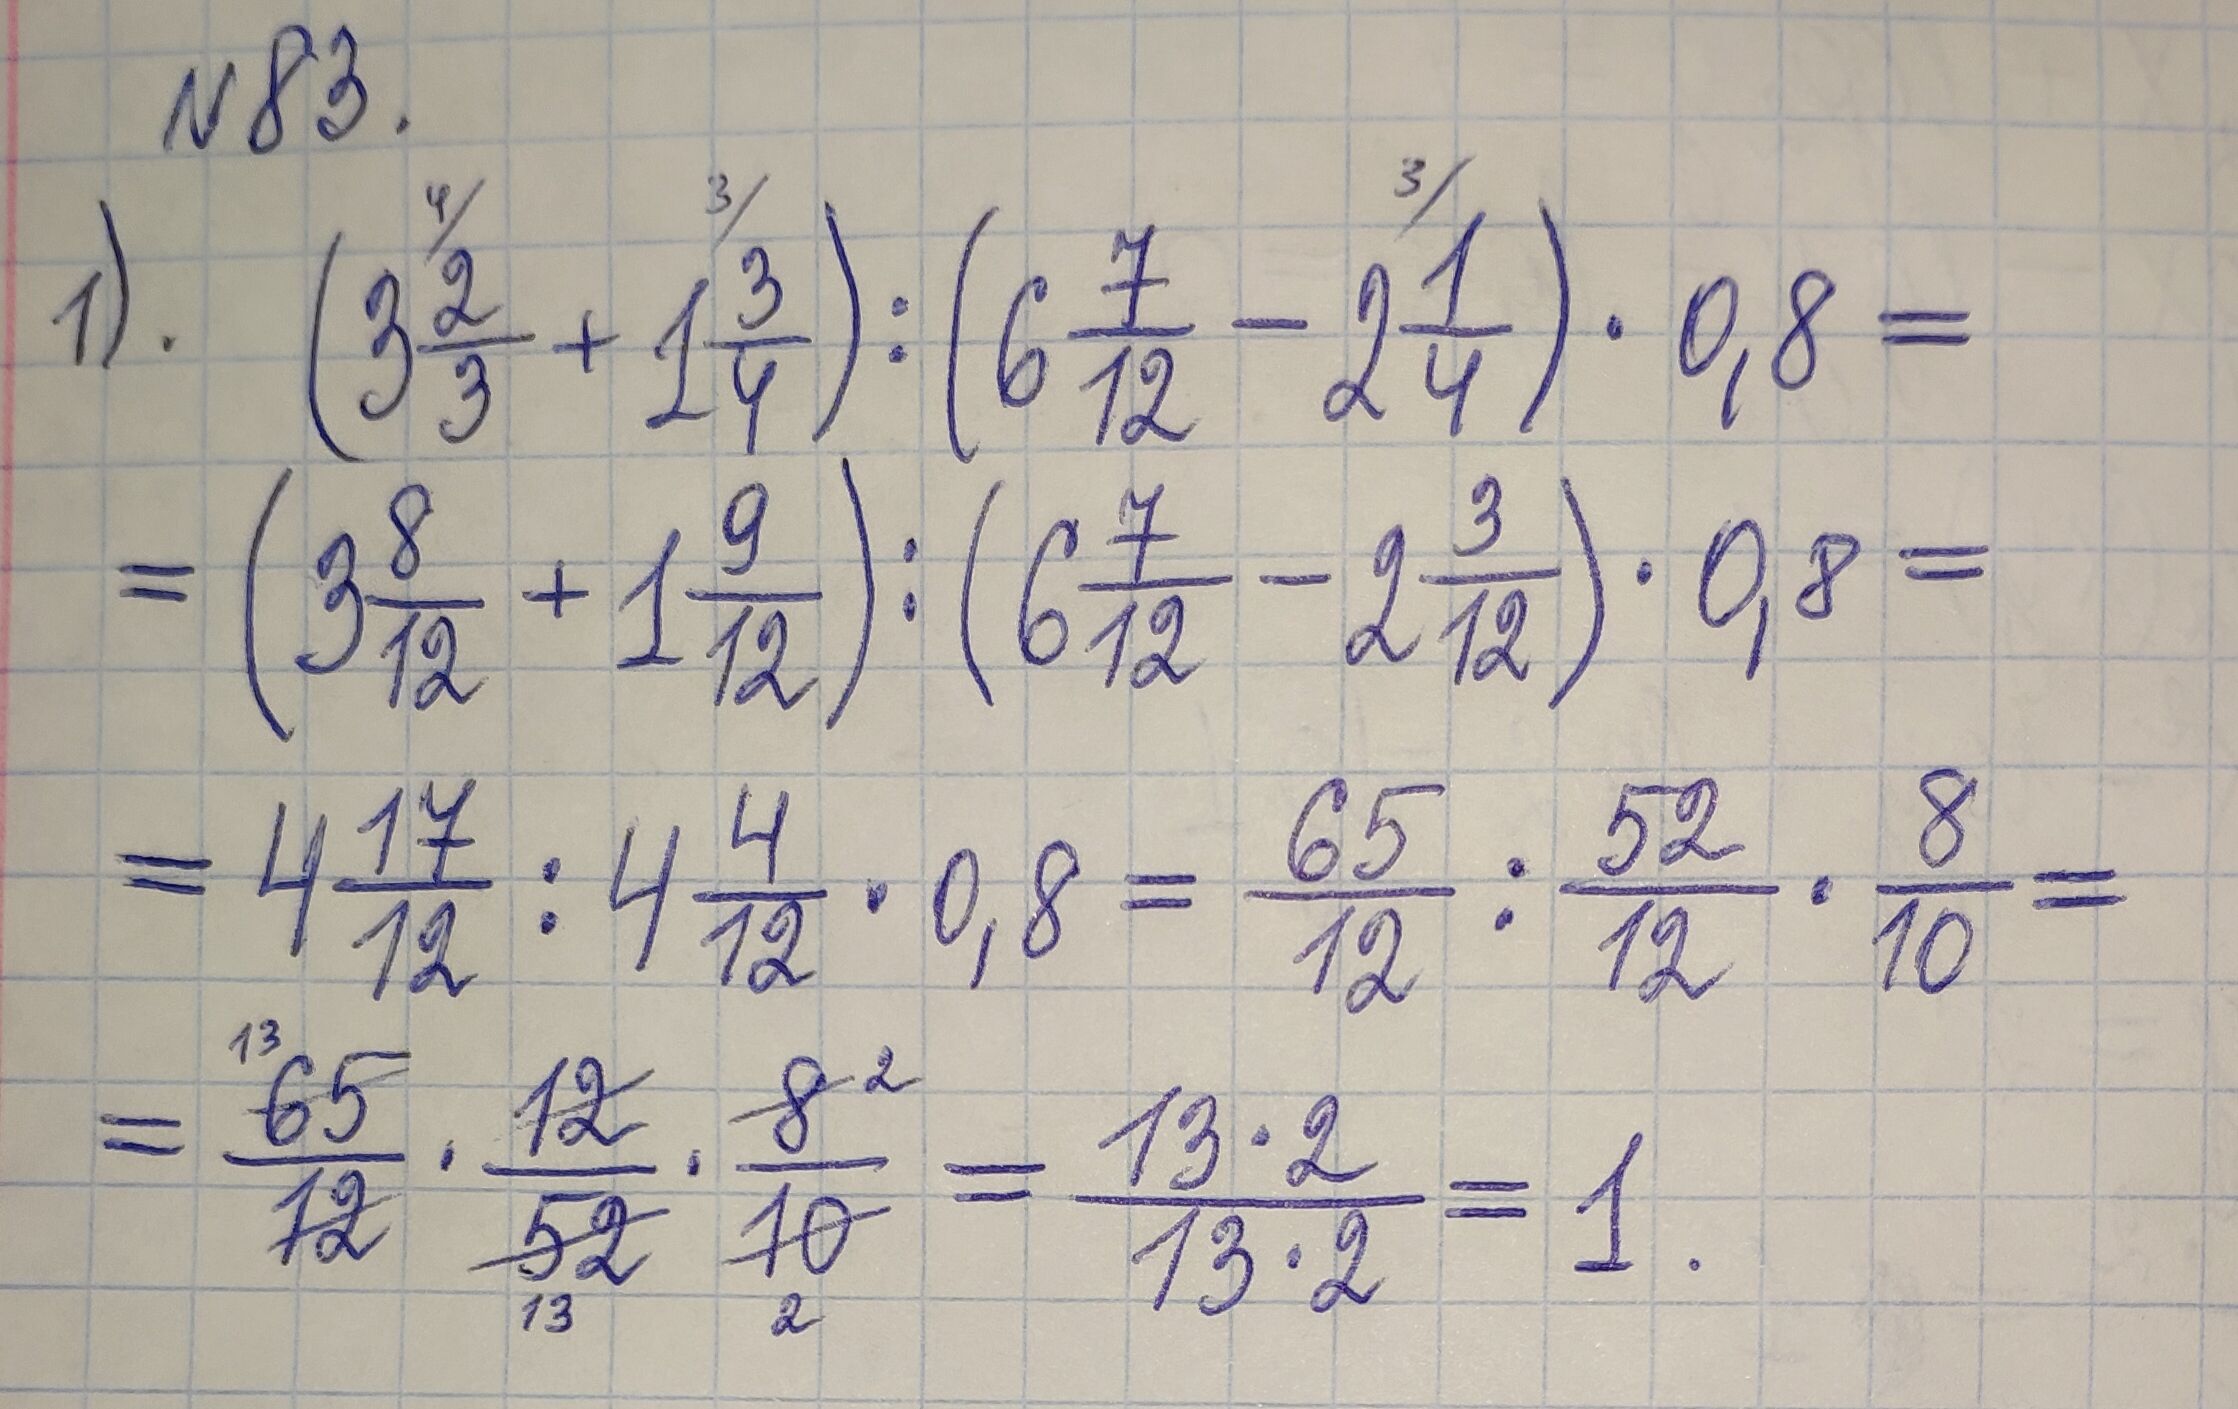 N83.
1). (3 2/3 + 1 3/4) : (6 7/12 − 2 1/4) · 0,8 =
= (3 8/12 + 1 9/12) : (6 7/12 − 2 3/12) · 0,8 =
= 4 17/12 : 4 4/12 · 0,8 = 65/12 : 52/12 · 8/10 =
= 65/12 · 12/52 · 8/10 = 13·2/13·2 = 1.